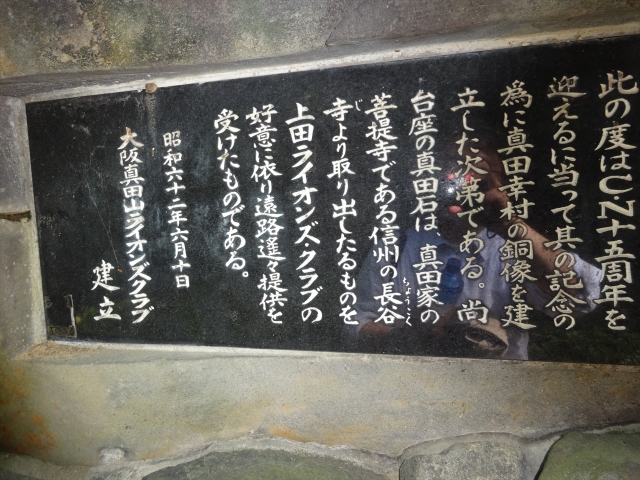 此の度はC.N十五周年を
迎えるに当って其の記念の
為に真田幸村の銅像を建
立した次第である。尚
台座の真田石は、真田家の
菩提寺である信州の長谷
ちょうこく
寺より取り出したるものを
じ
上田ライオンズ・クラブの
好意に依り遠路遙々提供を
受けたものである。
昭和六十二年六月十日
大阪真田山ライオンズクラブ
建立